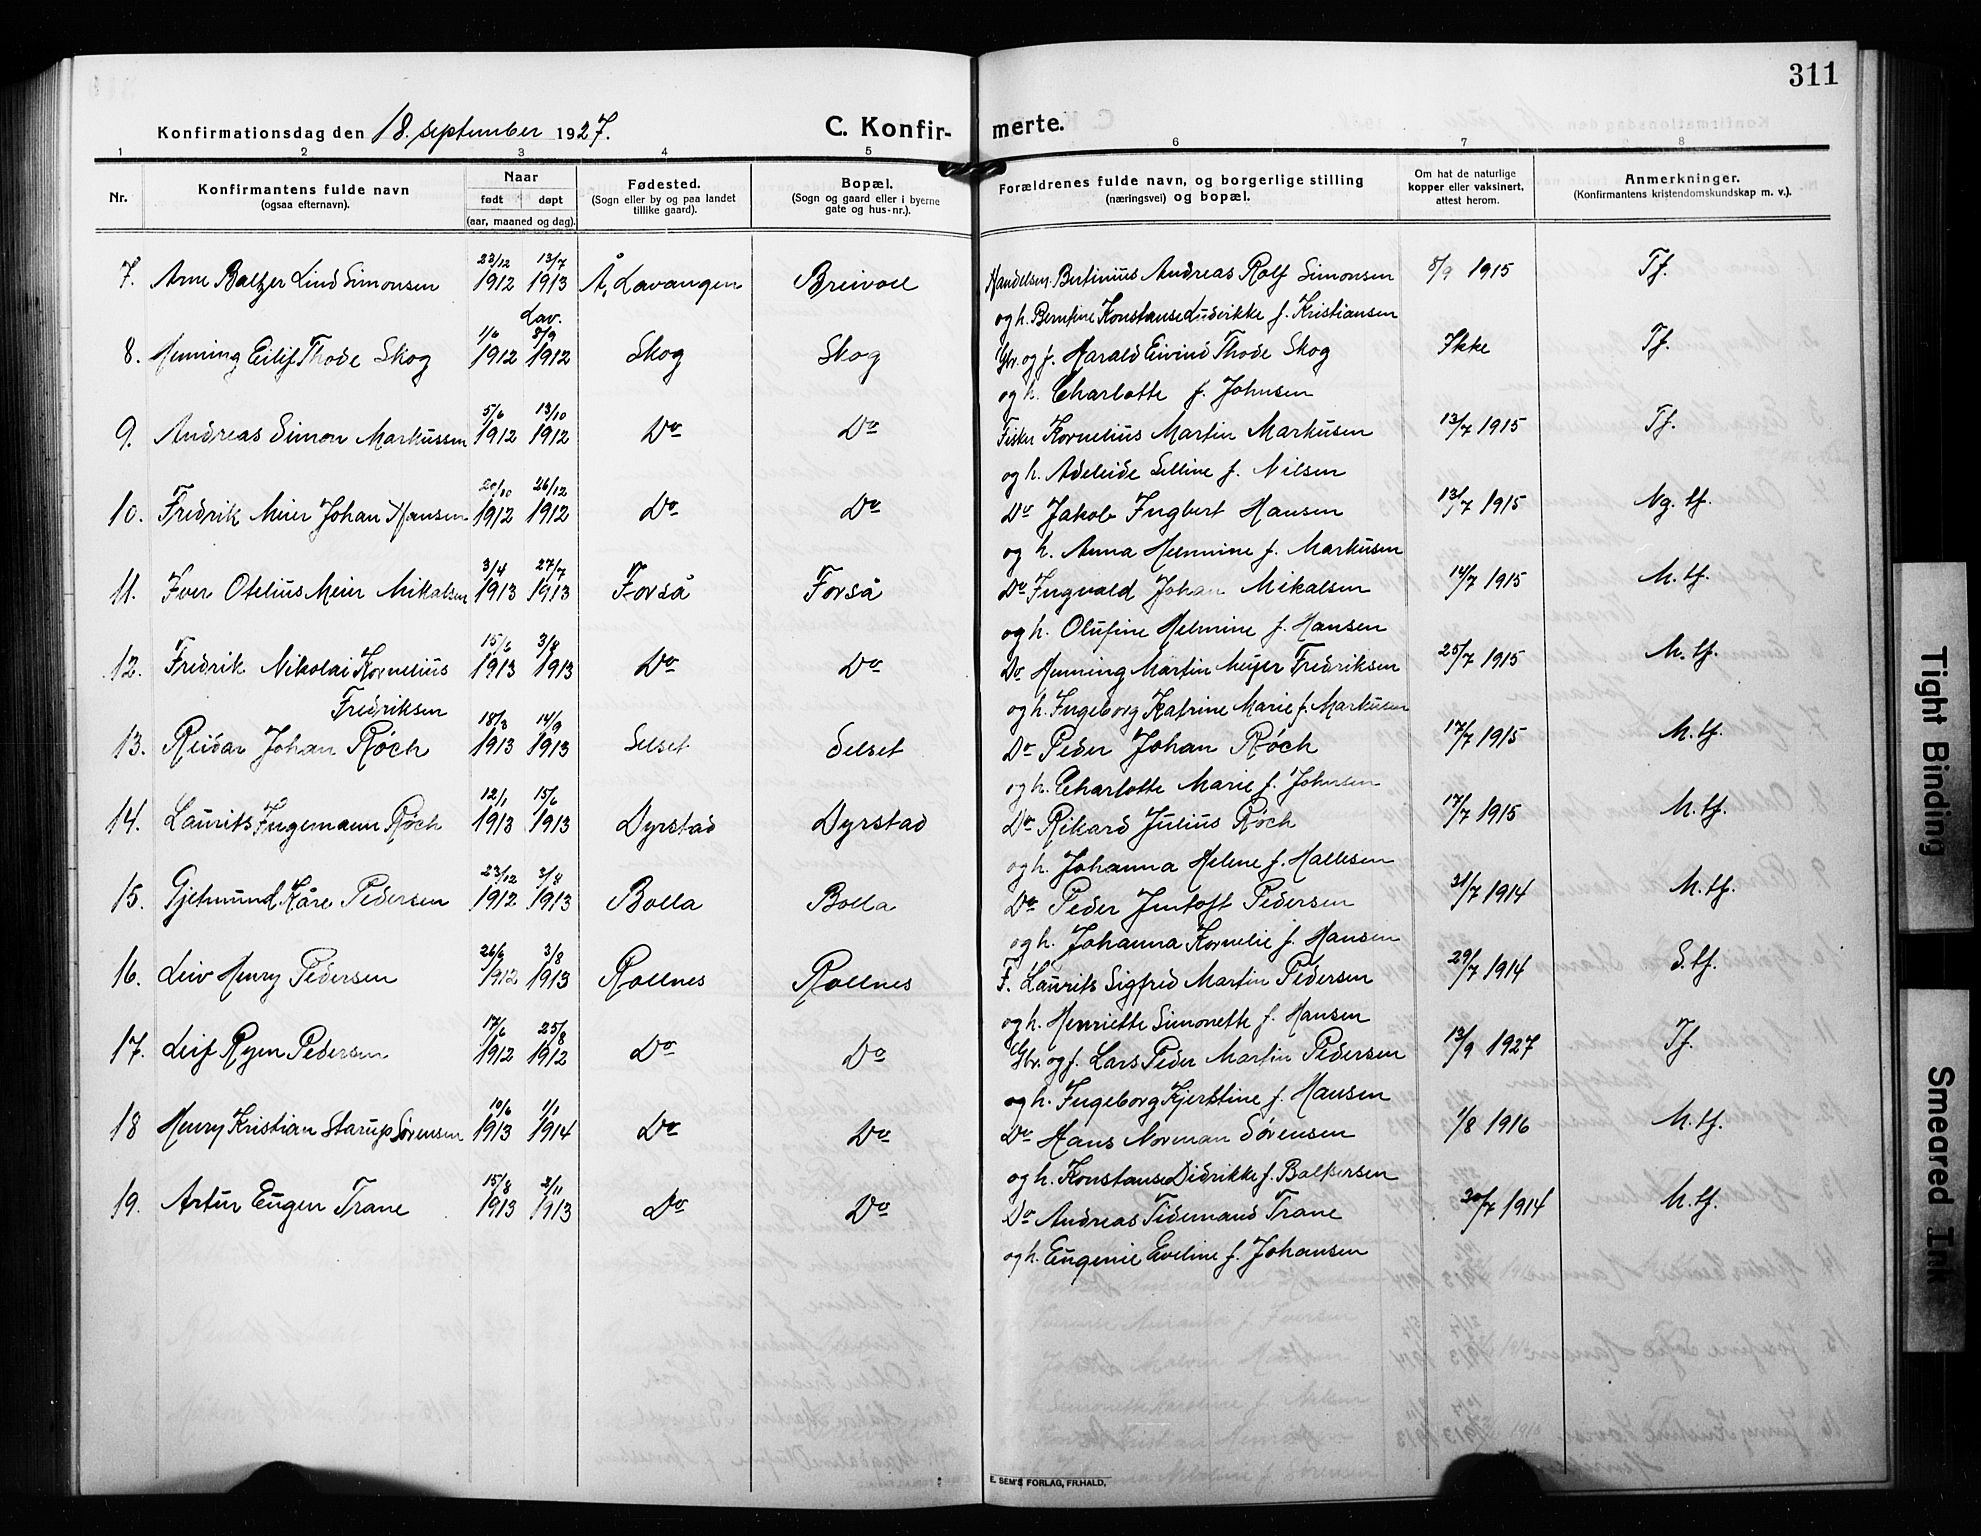 311
Konfirmationsdag den 18. september 1927. C. Konfir- merte.
1 2 3 4 5 6 7 8
Nr. Konfirmantens fulde navn (ogsaa efternavn). Naar født døpt (aar, maaned og dag). Fødested. (Sogn eller by og paa landet tillike gaard). Bopæl. (Sogn og gaard eller i byerne gate og hus-nr.). Forældrenes fulde navn, og borgerlige stilling (næringsvei) og bopæl. Om hat de naturlige kopper eller vaksinert, attest herom. Anmerkninger. (Konfirmantens kristendomskundskap m. v.).
7. Arne Baltzer Lind Simonsen 23/12 1912 13/7 1913 Å, Lavangen Breivoll Handelsm. Bertinius Andreas Rolf Simonsen 8/9 1915 Tf.
Lav. og h. Bernfine Konstanse Ludvikke f. Kristiansen
8. Henning Eilif Thode Skog 1/6 1912 8/9 1912 Skog Skog Gbr. og f. Harald Eivind Thode Skog Ikke Tf.
og h. Charlotte f. Johnsen
9. Andreas Simon Markussen 5/6 1912 13/10 1912 Do Do Fisker Kornelius Martin Markusen 13/7 1915 Tf.
og h. Adeleide Selline f. Nilsen
10. Fredrik Meier Johan Hansen 20/10 1912 26/12 1912 Do Do Do Jakob Ingbert Hansen 13/7 1915 Ng. tf.
og h. Anna Helmine f. Markusen
11. Iver Otelius Meier Mikalsen 3/4 1913 27/7 1913 Forså Forså Do Ingvald Johan Mikalsen 14/7 1915 M. tf.
og h. Olufine Helmine f. Hansen
12. Fredrik Nikolai Kornelius 15/6 1913 3/8 1913 Do Do Do Henning Martin Meyer Fredriksen 25/7 1915 M. tf.
Fredriksen og h. Ingeborg Katrine Marie f. Markusen
13. Reidar Johan Røch 18/3 1913 14/9 1913 Selset Selset Do Peder Johan Røch 17/7 1915 M. tf.
og h. Charlotte Marie f. Johnsen
14. Laurits Ingemann Røch 12/1 1913 15/6 1913 Dyrstad Dyrstad Do Rikard Julius Røch 17/7 1915 M. tf.
og h. Johanna Helene f. Hallesen
15. Gjetmund Kåre Pedersen 23/12 1912 3/8 1913 Bolla Bolla Do Peder Jentoft Pedersen 31/7 1914 M. tf.
og h. Johanna Kornelie f. Hansen
16. Leiv Henry Pedersen 26/6 1912 3/8 1913 Rollnes Rollnes F. Laurits Sigfred Martin Pedersen 29/7 1914 S. tf.
og h. Henriette Simonette f. Hansen
17. Leif Ryen Pedersen 17/6 1912 25/8 1912 Do Do Gbr. og f. Lars Peder Martin Pedersen 13/9 1927 Tf.
og h. Ingeborg Kjerstine f. Hansen
18 Henry Kristian Starup Sørensen 10/6 1913 1/1 1914 Do Do Do Hans Norman Sørensen 1/8 1916 M. tf.
og h. Konstanse Didrikke f. Baltsersen
19. Artur Eugen Trane 15/8 1913 2/11 1913 Do Do Do Andreas Tidemand Trane 30/7 1914 M. tf.
og h. Eugenie Eveline f. Johansen
E. SEM'S FORLAG, FR.HALD.
Tight Binding
Smeared Ink